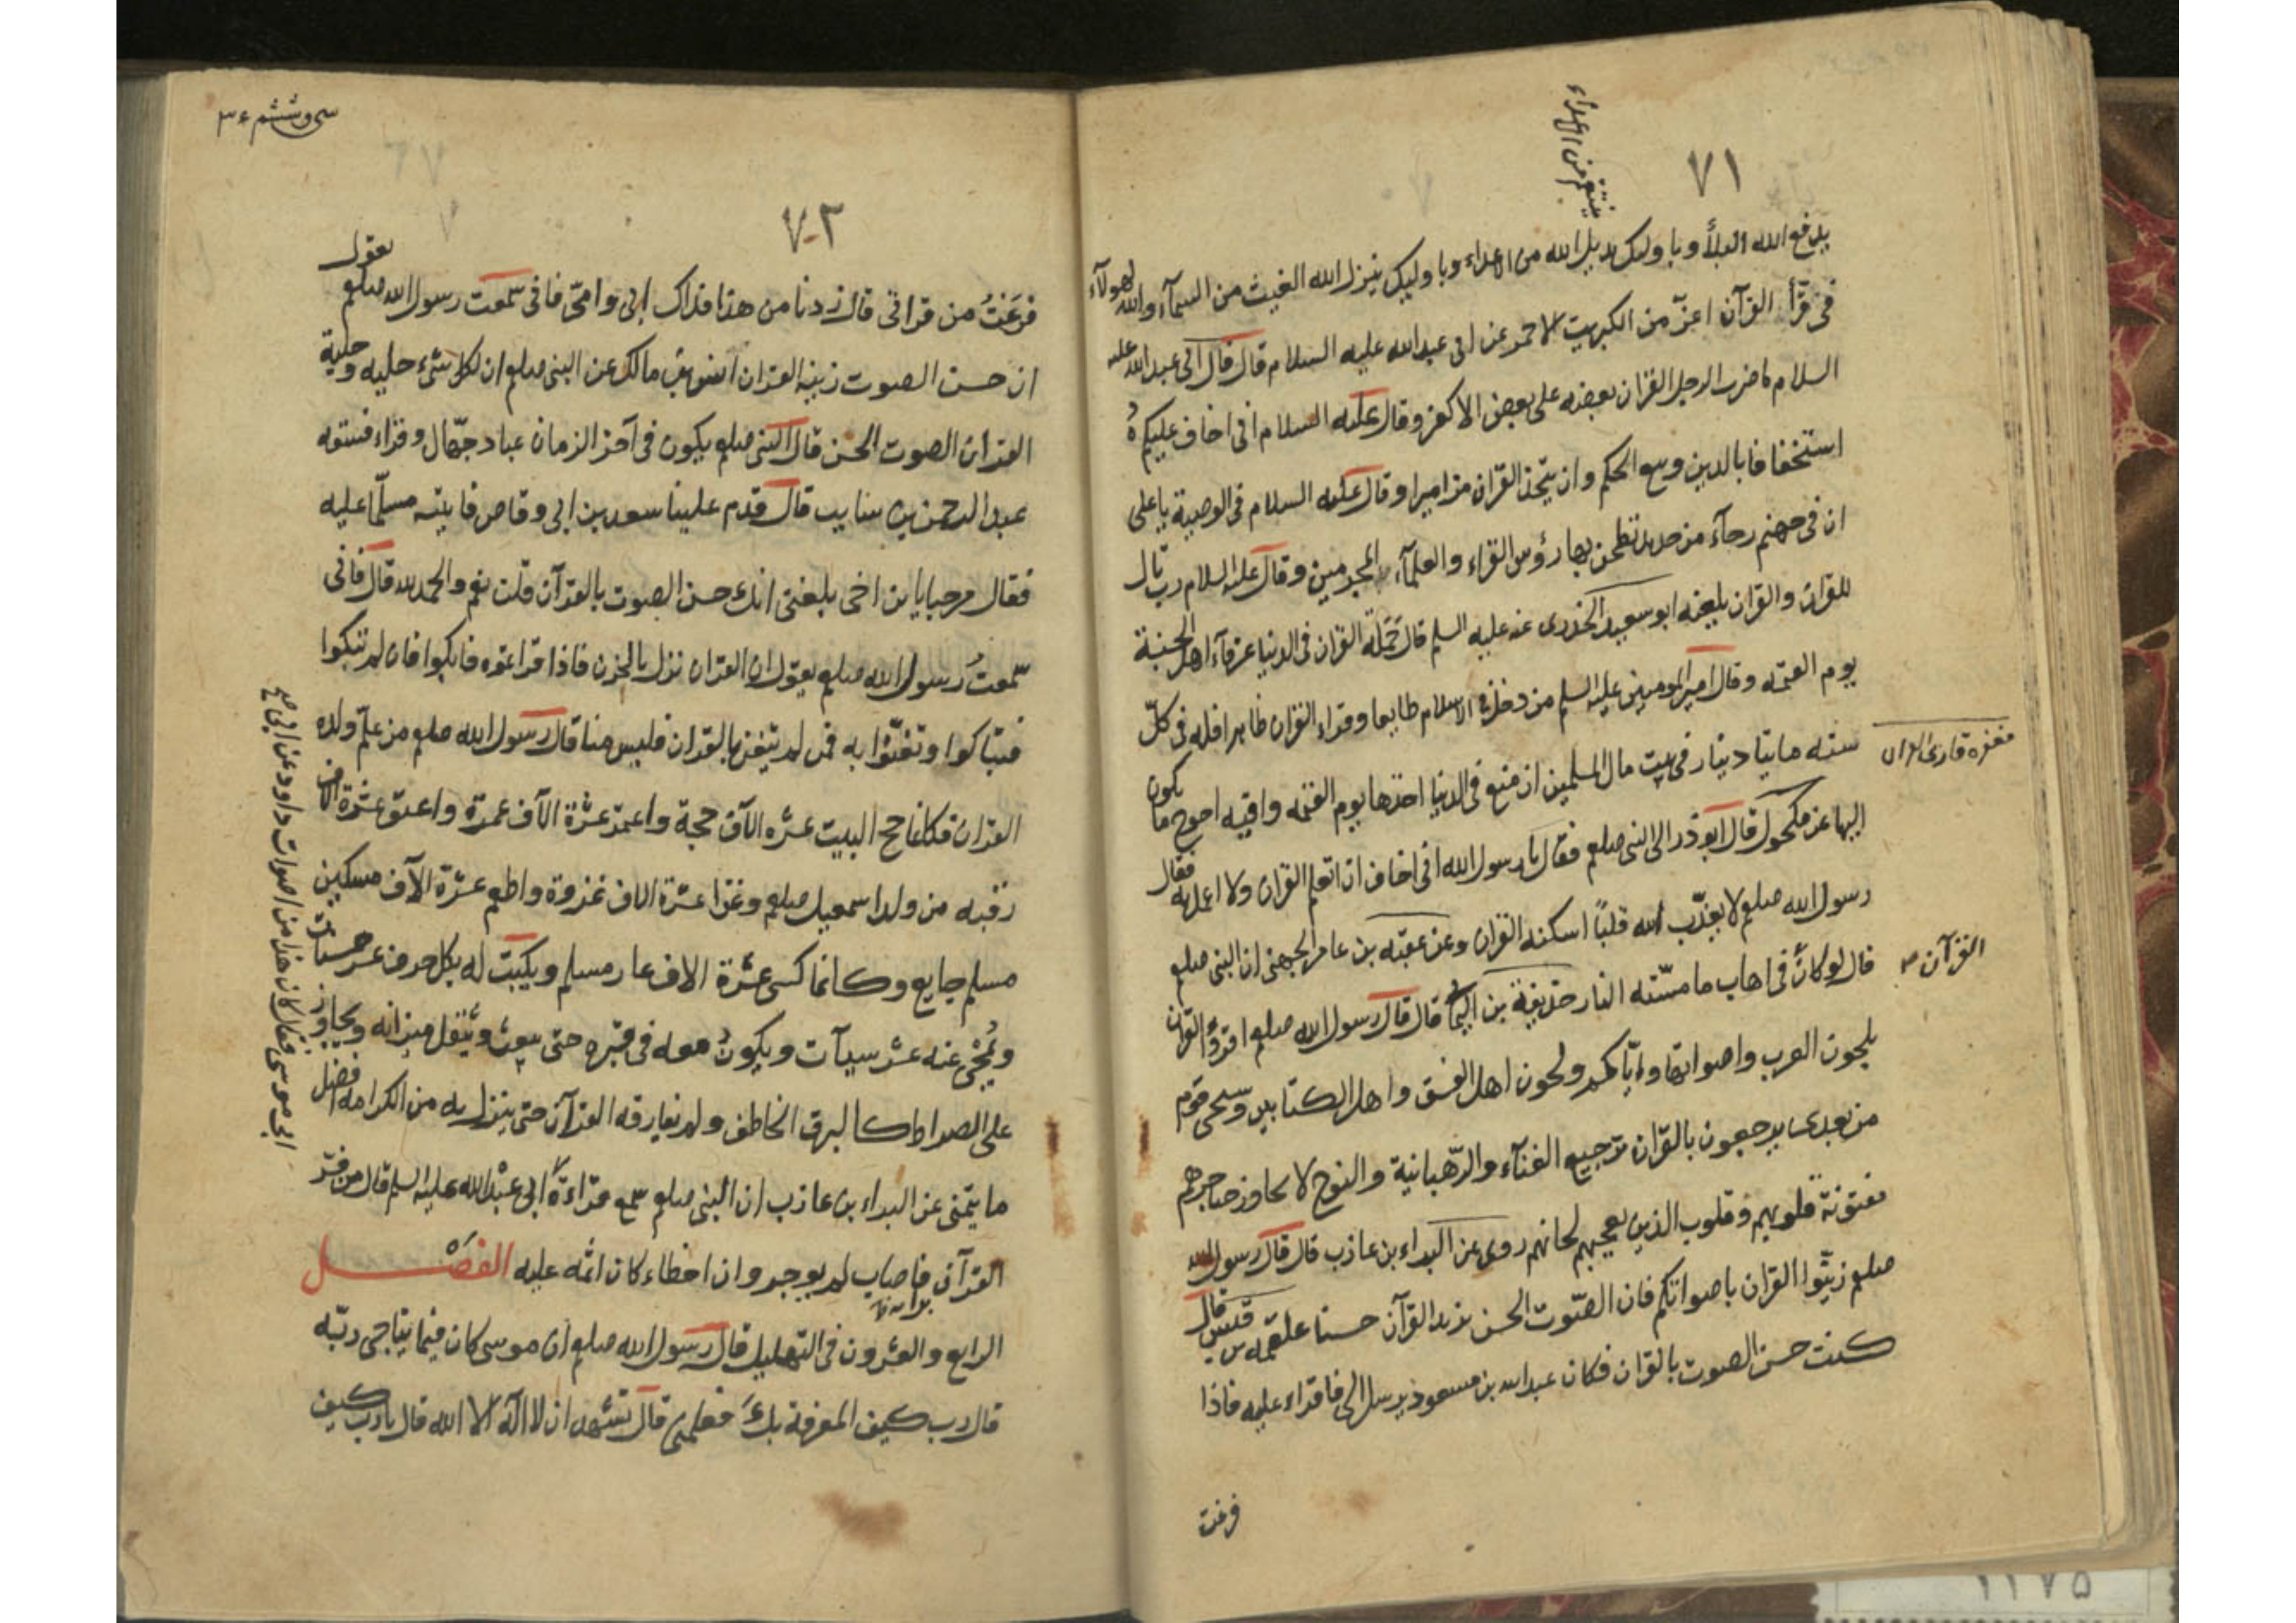 ٧١
ينتقم من الاعداء
يدفع الله البلأ وباولئك يديل الله من الاعداء وباوليك ينزل الله الغيث من السمآء والله لهولآء
فى قرّأ القرآن اعزّ من الكبريت الاحمر عن ابى عبدالله عليه السلام قال قال ابى عبدالله عليه
السلام ما ضرب الرجل القران بعضه على بعض الا كفر وقال عليه السلام انى اخاف عليكم
استخفافا بالدين وبيع الحكم وان يتخذ القران مزاميرا وقال عليه السلام فى الوصية يا على
ان فى جهنم رحآء من حديد تطحن بها رؤس القراء والعلمآء المجرمين وقال عليه السلام رب تال
للقران والقران يلعنه ابو سعيد الخذرى عنه عليه السلم قال حملة القران فى الدنيا عرفآء اهل الجنة
يوم القيمه وقال امير المومنين عليه السلم من دخل فى الاسلام طايعا وقراء القران ظاهرا فله فى كلّ
سنه مايتا دينار فى بيت مال المسلمين ان منع فى الدنيا اخذها يوم القيمه وافيه احوج ما يكون
مغفره قارى القران
اليها عن مكحول قال ابوذر الى النبى صلعم فقال يا رسول الله انى اخاف ان اتعلم القران ولا اعمل به فقال
رسول الله صلعم لا يعذّب الله قلبًا اسكنه القران وعن عقبه بن عامر الجهنى ان النبى صلعم
القرآن
قال لو كان فى اهاب ما مسّته النار حذيفة بن اليمان قال قال رسول الله صلعم اقرؤا القران
بلحون العرب واصواتها واياكم ولحون اهل الفسق واهل الكتابين وسيجى قوم
من بعدى يرجعون بالقران ترجيع الغنآء والرّهبانية والنوح لا يجاوز حناجرهم
مفتونة قلوبهم وقلوب الذين يعجبهم لحانهم روى عن البراء بن عازب قال قال رسول الله
صلعم زيّنوا القران باصواتكم فان الصّوت الحسن يزيد القرآن حسنا علقمه بن قيس قال
كنت حسن الصوت بالقران فكان عبدالله بن مسعود يرسل الى فاقراء عليه فاذا
فرغت
سى وششم ٣٦
٧٢
فرغتُ من قراتى قال زدنا من هذا فداك ابى وامّى فانى سمعت رسول الله صلعم يقول
ان حسن الصوت زينة القران انس بن مالك عن النبى صلعم ان لكل شىء حليه وحلية
القران الصوت الحسن قال النبى صلعم يكون فى آخر الزمان عباد جهّال وقراء فسقه
عبد الرحمن بن سايب قال قدم علينا سعد بن ابى وقاص فاتيته مسلّما عليه
فقال مرحبا يابن اخى بلغنى انك حسن الصوت بالقرآن قلت نعم والحمد لله قال فانى
سمعتُ رسول الله صلعم يقول ان القران نزل بالحزن فاذا قراتموه فابكوا فان لم تبكوا
فتباكوا وتغنّوا به فمن لم يتغن بالقران فليس منا قال رسول الله صلعم من علّم ولده
القران فكانما حج البيت عشره الآف حجة واعتمر عشرة الآف عمرة واعتق عشرة الآف
رقبه من ولد اسمعيل صلعم وغزا عشرة الاف غزوة واطعم عشرة الآف مسكين
مسلم جايع وكانما كسى عشرة الاف عار مسلم ويكتب له بكل حرف عشر حسنات
ويُمحى عنه عشر سيآت ويكون معه فى قبره حتى يبعث ويثقل ميزانه ويجاوز
على الصراط كالبرق الخاطف ولم يفارقه القرآن حتى ينزل به من الكرامه افضل
ما يتمنى عن البراء بن عازب ان النبى صلعم سمع قراءة ابى عبد الله عليه السلم قال من فسّر
القرآن فاصاب لم يوجر وان اخطاء كان اثمه عليه الفصل
برايه
الرابع والعشرون فى التهليل قال رسول الله صلعم ان موسى كان فيما يناجى ربّه
قال رب كيف المعرفة بك فعلمنى قال تشهد ان لا اله الا الله قال يا رب كيف
ابى موسى فقال كان هذا من اصوات داود عن ابى